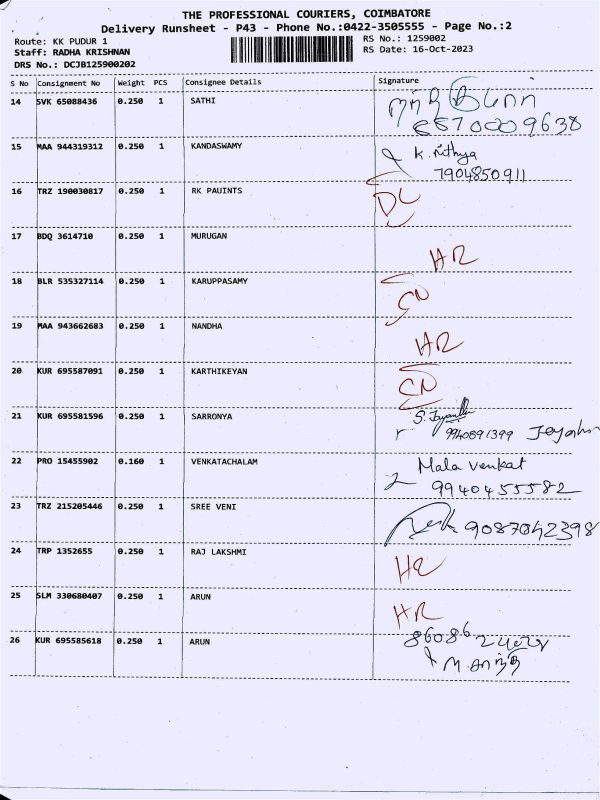 THE PROFESSIONAL COURIERS, COIMBATORE
Delivery Runsheet - P43 - Phone No.:0422-3505555 - Page No.:2
Route: KK PUDUR 1
RS No.: 1259002
Staff: RADHA KRISHNAN
RS Date: 16-Oct-2023
DRS No.: DCJB125900202
S No Consignment No Weight PCS Consignee Details Signature
14 SVK 65088436 0.250 1 SATHI
15 MAA 944319312 0.250 1 KANDASWAMY K. Nithya
7904850911
16 TRZ 190030817 0.250 1 RK PAUINTS DL
17 BDQ 3614710 0.250 1 MURUGAN HR
18 BLR 535327114 0.250 1 KARUPPASAMY
19 MAA 943662683 0.250 1 NANDHA HR
20 KUR 695587091 0.250 1 KARTHIKEYAN CN
21 KUR 695581596 0.250 1 SARRONYA
9940891399
22 PRO 15455902 0.160 1 VENKATACHALAM Mala venkat
9940455582
23 TRZ 215205446 0.250 1 SREE VENI 9087042398
24 TRP 1352655 0.250 1 RAJ LAKSHMI
25 SLM 330680407 0.250 1 ARUN HR
26 KUR 695585618 0.250 1 ARUN